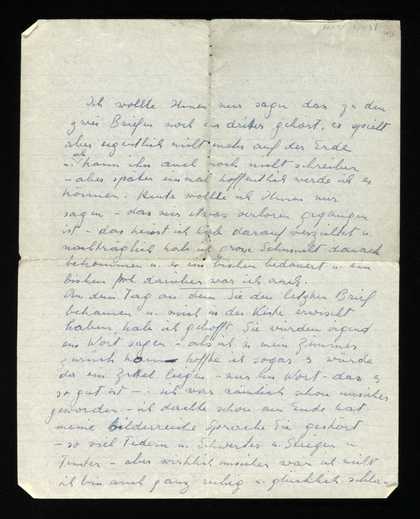 Ich wollte Ihnen nur sagen das zu den
zwei Briefen noch ein dritter gehört, er spielt
aber eigentlich nicht mehr auf der Erde
u. ich kann ihn auch noch nicht schreiben
– aber später einmal hoffentlich werde ich es
können. Heute wollte ich Ihnen nur
sagen – das mir etwas verloren gegangen
ist – das heisst ich habe darauf verzichtet u.
nachträglich habe ich grose Sehnsucht danach
bekommen u. es ein bischen bedauert u. ein
bischen froh darüber war ich auch.
An dem Tag an dem Sie den letzten Brief
bekamen u. mich in der Küche erwischt
haben, habe ich gehofft Sie würden irgend
ein Wort sagen – als ich in mein Zimmer
zurück kam – hoffte ich sogar es würde
da ein Zettel liegen – nur ein Wort – das es
so gut ist – . ich war nämlich schon unsicher
geworden – ich dachte schon am Ende hat
meine bilderreiche Sprache Sie gestört
– so viel Federn u. Schwerter u. Siegen u.
– aber wirklich unsicher war ich nicht
ich bin auch ganz ruhig u. glücklich